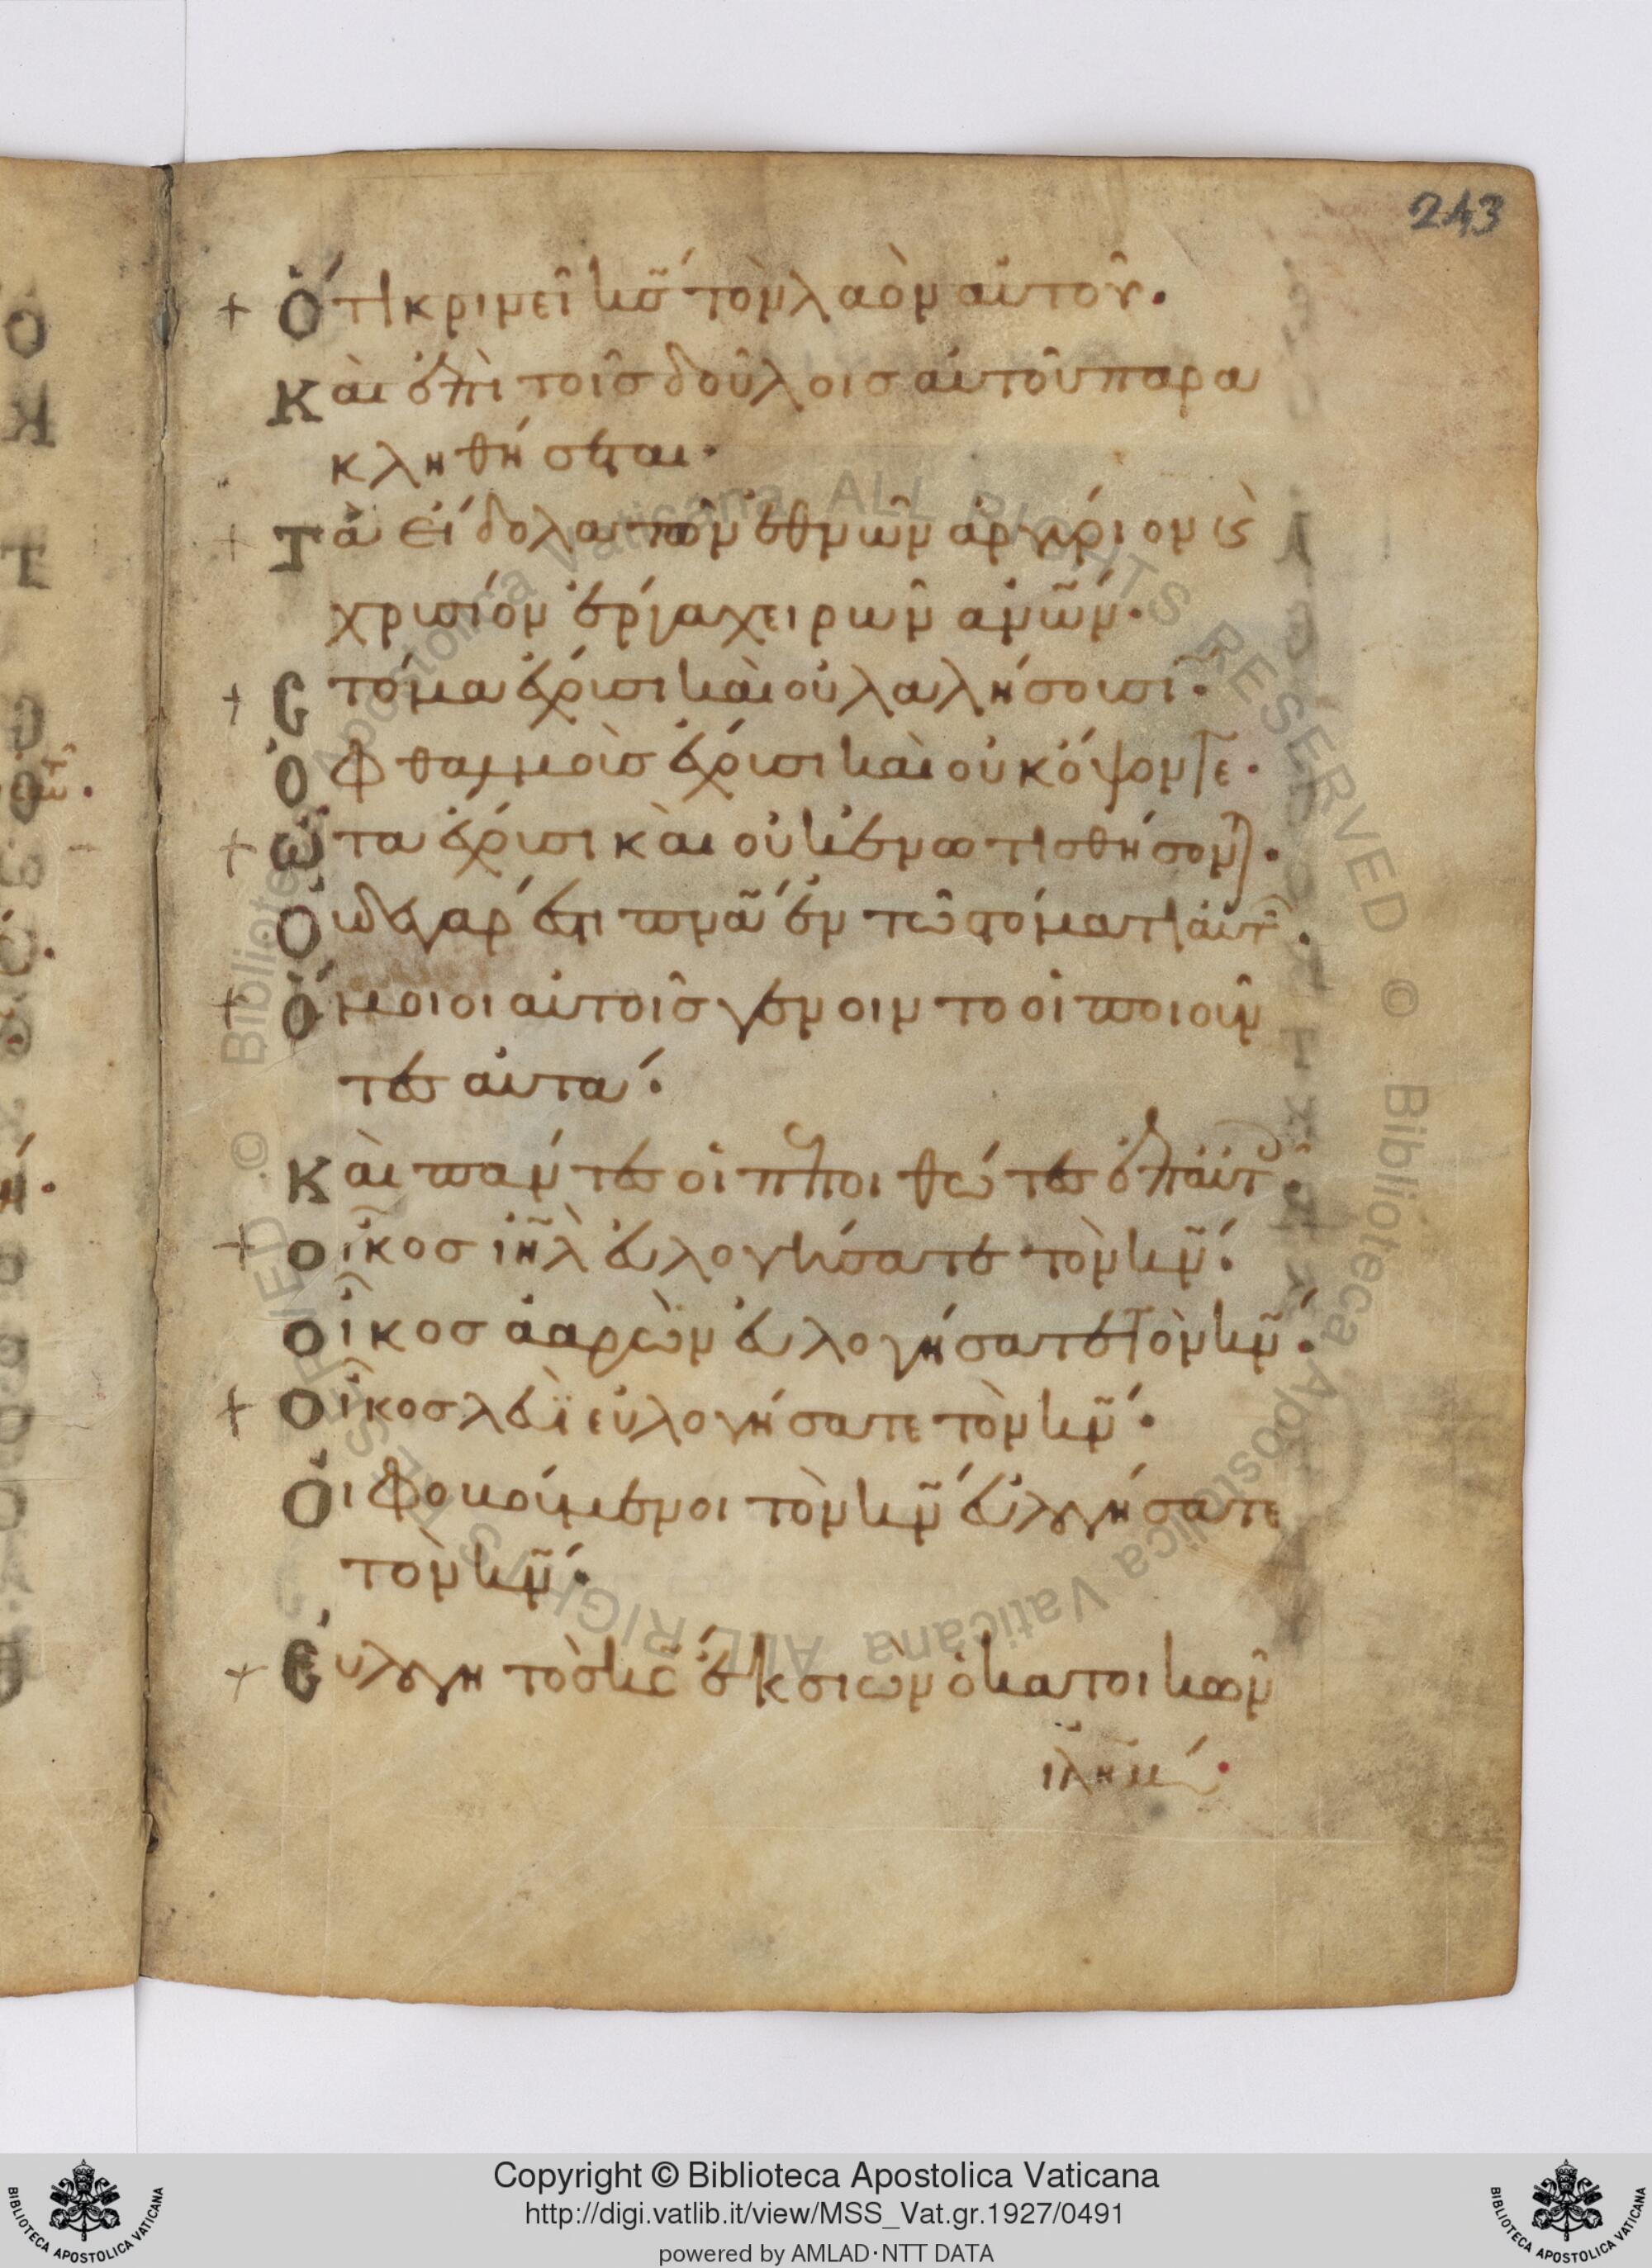 243
+ Ὅτι κρινεῖ κ̅σ̅ τὸν λαὸν αὐτοῦ.
Κὰι ἐπὶ τοῖσ δοῦλοισ αὐτοῦ παρα
κληθήσεται.
+ Τὰ εἴδολα τῶν ἐθνῶν ἀργύριον ϗ
χρυσίον ἔργα χειρων̑ ἀν̅ω̅ν̅.
+ Στόμα ἔχουσι κὰι οὐ λαλήσουσι̅.
Ὀφθαλμοὺσ ἔχουσι κὰι οὐκ ὄψοντε.
+ Ὦτα ἔχουσι κὰι οὐκ ἐνωτισθήσοντ).
Οὐδὲ γαρ ἐστι πν̅α̅ ἐν τῶ στόματι αὐτ.
+ Ὅμοιοι αὐτοῖσ γένοιντο οἱ ποιοῦν
τεσ αὐτα.
Κὰι πάντεσ οἱ πεποιθότεσ ἐπ αὐτ.
+ Οἶκοσ ἰη̅λ εὐλογήσατε τὸν κ̅ν̅.
Οἶκοσ ἀαρὼν εὐλογήσατε τὸν κ̅ν̅.
+ Οἶκοσ λευῒ εὐλογήσατε τὸν κ̅ν̅.
Οἱ φοβούμενοι τὸν κ̅ν̅ εὐλογήσατε
τὸν κ̅ν̅.
+ Εὐλογητὸσ κ̅σ̅ ἐκ σιὼν ὁ κατοικῶν
ἰλημ.
Copyright © Biblioteca Apostolica Vaticana
http://digi.vatlib.it/view/MSS_Vat.gr.1927/0491
powered by AMLAD·NTT DATA
BIBLIOTECA APOSTOLICA VATICANA
BIBLIOTECA APOSTOLICA VATICANA
Biblioteca Apostolica Vaticana ALL RIGHTS RESERVED © Biblioteca Apostolica Vaticana ALL RIGHTS RESERVED ©